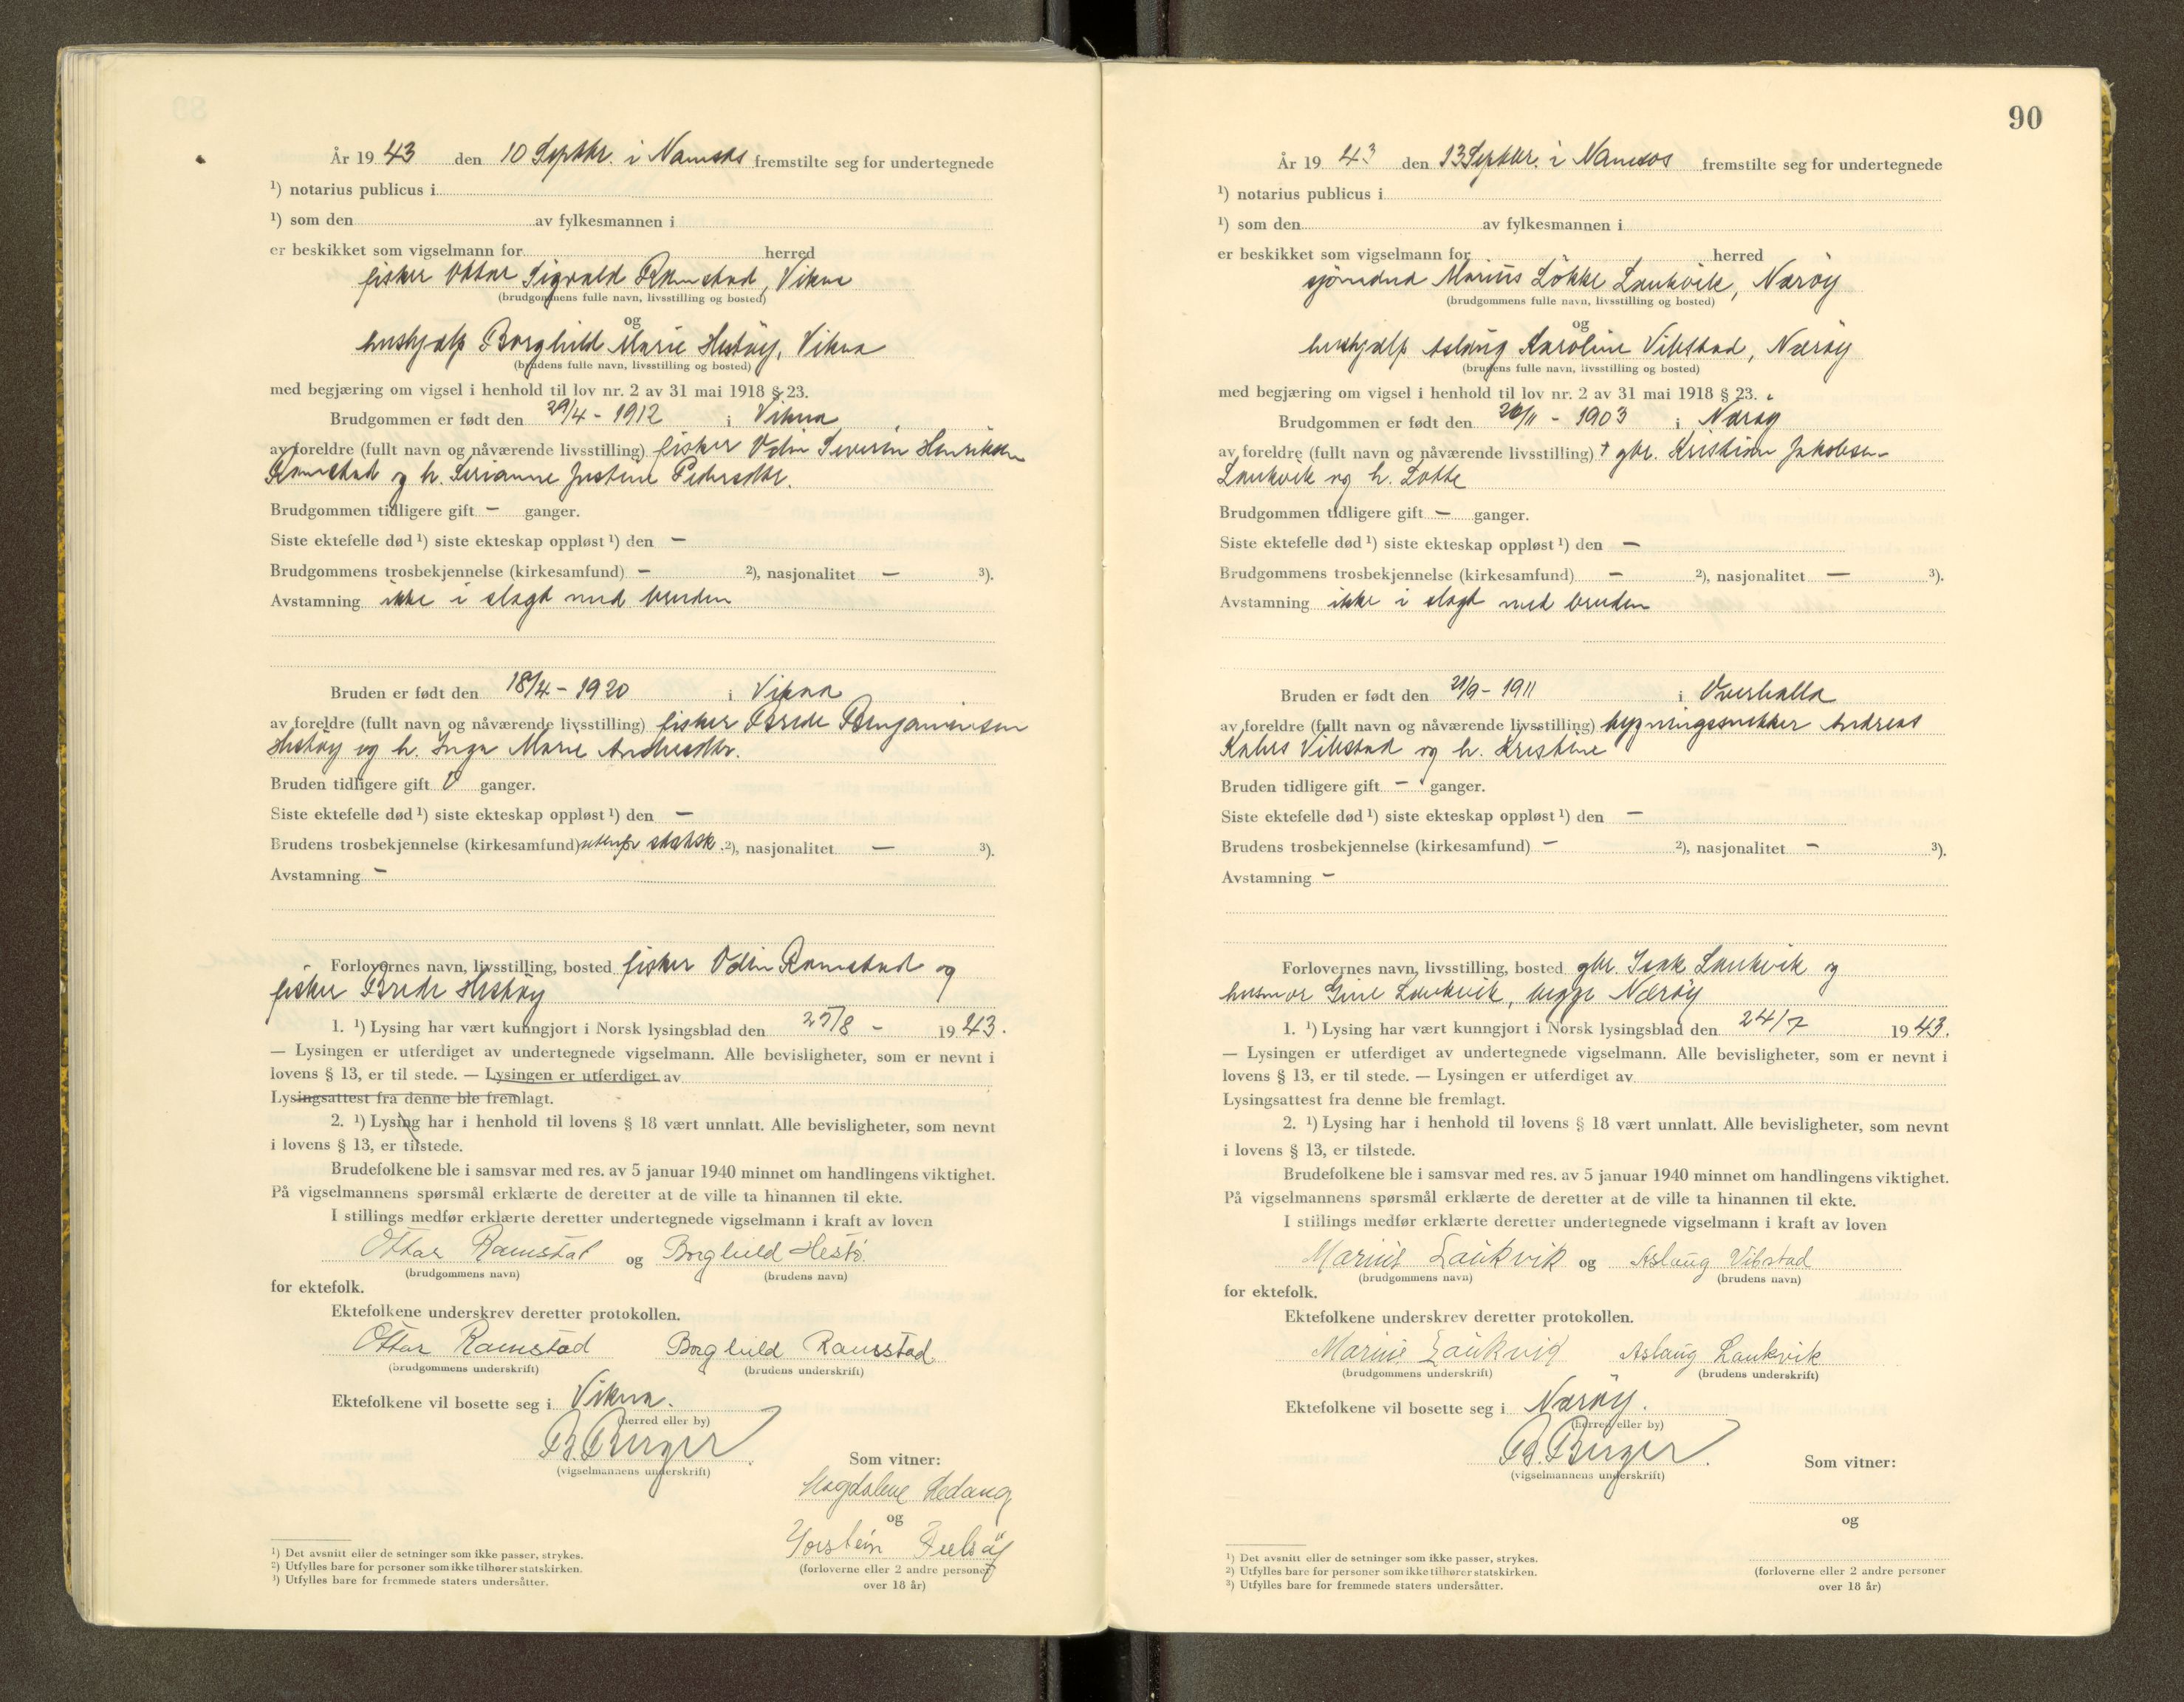 År 19 43 den 10 Septbr. i Namsos fremstilte seg for undertegnede
¹) notarius publicus i
¹) som den av fylkesmannen i
er beskikket som vigselmann for herred
fisker Ottar Sigvald Ramstad, Vikna
(brudgommens fulle navn, livsstilling og bosted)
og
hushjelp Borghild Marie Hestøy, Vikna
(brudens fulle navn, livsstilling og bosted)
med begjæring om vigsel i henhold til lov nr. 2 av 31 mai 1918 § 23.
Brudgommen er født den 29/4 - 1912 i Vikna
av foreldre (fullt navn og nåværende livsstilling) fisker Odin Severin Henriksen
Ramstad og h. Serianne Justine Pedersdtr.
Brudgommen tidligere gift — ganger.
Siste ektefelle død ¹) siste ekteskap oppløst ¹) den —
Brudgommens trosbekjennelse (kirkesamfund) — ²), nasjonalitet — ³).
Avstamning ikke i slegt med bruden
Bruden er født den 18/4 - 1920 i Vikna
av foreldre (fullt navn og nåværende livsstilling) fisker Brede Benjaminsen
Hestøy og h. Inga Marie Andreasdtr.
Bruden tidligere gift 0 ganger.
Siste ektefelle død ¹) siste ekteskap oppløst ¹) den —
Brudens trosbekjennelse (kirkesamfund) utenfor statsk. ²), nasjonalitet — ³).
Avstamning —
Forlovernes navn, livsstilling, bosted fisker Odin Ramstad og
fisker Brede Hestøy
1. ¹) Lysing har vært kunngjort i Norsk lysingsblad den 25/8 - 19 43.
— Lysingen er utferdiget av undertegnede vigselmann. Alle bevisligheter, som er nevnt i
lovens § 13, er til stede. — Lysingen er utferdiget av
Lysingsattest fra denne ble fremlagt.
2. ¹) Lysing har i henhold til lovens § 18 vært unnlatt. Alle bevisligheter, som nevnt
i lovens § 13, er tilstede.
Brudefolkene ble i samsvar med res. av 5 januar 1940 minnet om handlingens viktighet.
På vigselmannens spørsmål erklærte de deretter at de ville ta hinannen til ekte.
I stillings medfør erklærte deretter undertegnede vigselmann i kraft av loven
Ottar Ramstad og Borghild Hestø
(brudgommens navn) (brudens navn)
for ektefolk.
Ektefolkene underskrev deretter protokollen.
Ottar Ramstad Borghild Ramsstad
(brudgommens underskrift) (brudens underskrift)
Ektefolkene vil bosette seg i Vikna.
(herred eller by)
B. Berger
(vigselmannens underskrift)
Som vitner:
Magdalene Sedang
og
Torstein
(forloverne eller 2 andre personer
over 18 år)
¹) Det avsnitt eller de setninger som ikke passer, strykes.
²) Utfylles bare for personer som ikke tilhører statskirken.
³) Utfylles bare for fremmede staters undersåtter.
90
År 19 43 den 13 Septbr. i Namsos fremstilte seg for undertegnede
¹) notarius publicus i
¹) som den av fylkesmannen i
er beskikket som vigselmann for herred
sjømand Marius Løkke Laukvik, Nærøy
(brudgommens fulle navn, livsstilling og bosted)
og
hushjelp Aslaug Karoline Vibstad, Nærøy
(brudens fulle navn, livsstilling og bosted)
med begjæring om vigsel i henhold til lov nr. 2 av 31 mai 1918 § 23.
Brudgommen er født den 26/11 - 1903 i Nærøy
av foreldre (fullt navn og nåværende livsstilling) † gbr. Kristian Jakobsen
Laukvik og h. Lotte
Brudgommen tidligere gift — ganger.
Siste ektefelle død ¹) siste ekteskap oppløst ¹) den —
Brudgommens trosbekjennelse (kirkesamfund) — ²), nasjonalitet — ³).
Avstamning ikke i slegt med bruden
Bruden er født den 21/9 - 1911 i Overhalla
av foreldre (fullt navn og nåværende livsstilling) bygningssnekker Andreas
Vibstad og h. Kristine
Bruden tidligere gift — ganger.
Siste ektefelle død ¹) siste ekteskap oppløst ¹) den —
Brudens trosbekjennelse (kirkesamfund) — ²), nasjonalitet — ³).
Avstamning —
Forlovernes navn, livsstilling, bosted gbr. Isak Laukvik og
husmor Gine Laukvik, begge Nærøy
1. ¹) Lysing har vært kunngjort i Norsk lysingsblad den 24/7 19 43.
— Lysingen er utferdiget av undertegnede vigselmann. Alle bevisligheter, som er nevnt i
lovens § 13, er til stede. — Lysingen er utferdiget av
Lysingsattest fra denne ble fremlagt.
2. ¹) Lysing har i henhold til lovens § 18 vært unnlatt. Alle bevisligheter, som nevnt
i lovens § 13, er tilstede.
Brudefolkene ble i samsvar med res. av 5 januar 1940 minnet om handlingens viktighet.
På vigselmannens spørsmål erklærte de deretter at de ville ta hinannen til ekte.
I stillings medfør erklærte deretter undertegnede vigselmann i kraft av loven
Marius Laukvik og Aslaug Vibstad
(brudgommens navn) (brudens navn)
for ektefolk.
Ektefolkene underskrev deretter protokollen.
Marius Laukvik Aslaug Laukvik
(brudgommens underskrift) (brudens underskrift)
Ektefolkene vil bosette seg i Nærøy.
(herred eller by)
B. Berger
(vigselmannens underskrift)
Som vitner:
og
(forloverne eller 2 andre personer
over 18 år)
¹) Det avsnitt eller de setninger som ikke passer, strykes.
²) Utfylles bare for personer som ikke tilhører statskirken.
³) Utfylles bare for fremmede staters undersåtter.